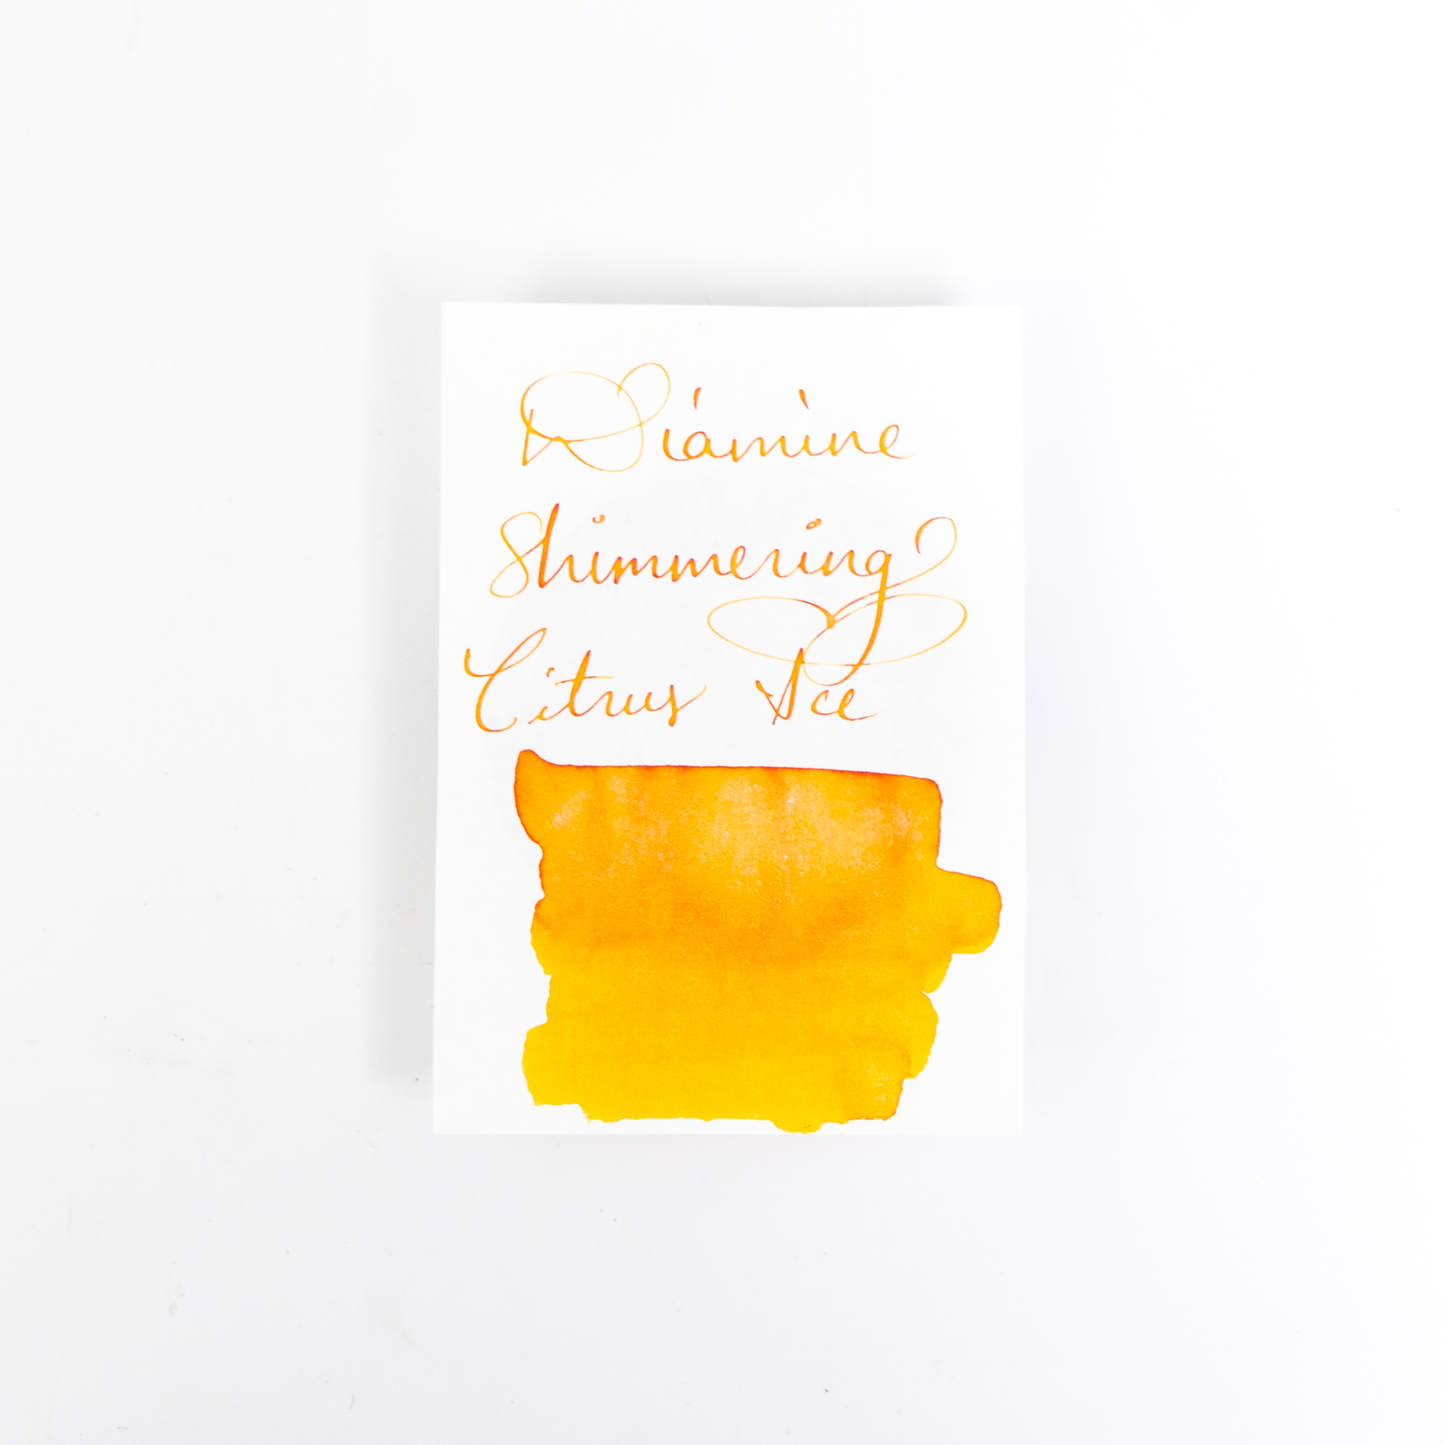 Diamine
Shimmering
Citrus Ice